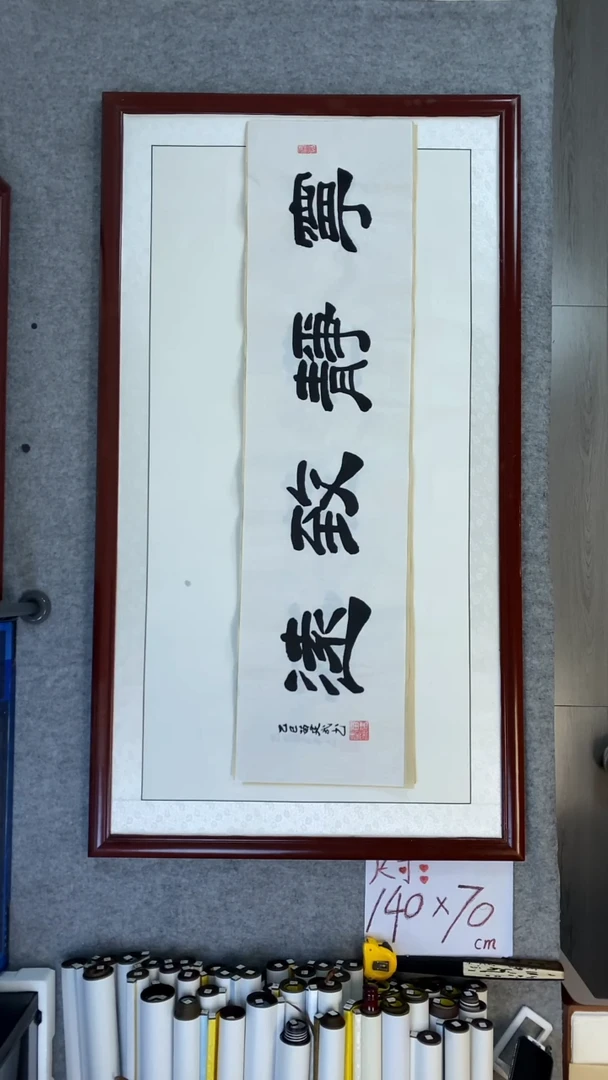 寧靜致遠
乙巳
尺寸:
140×70
cm